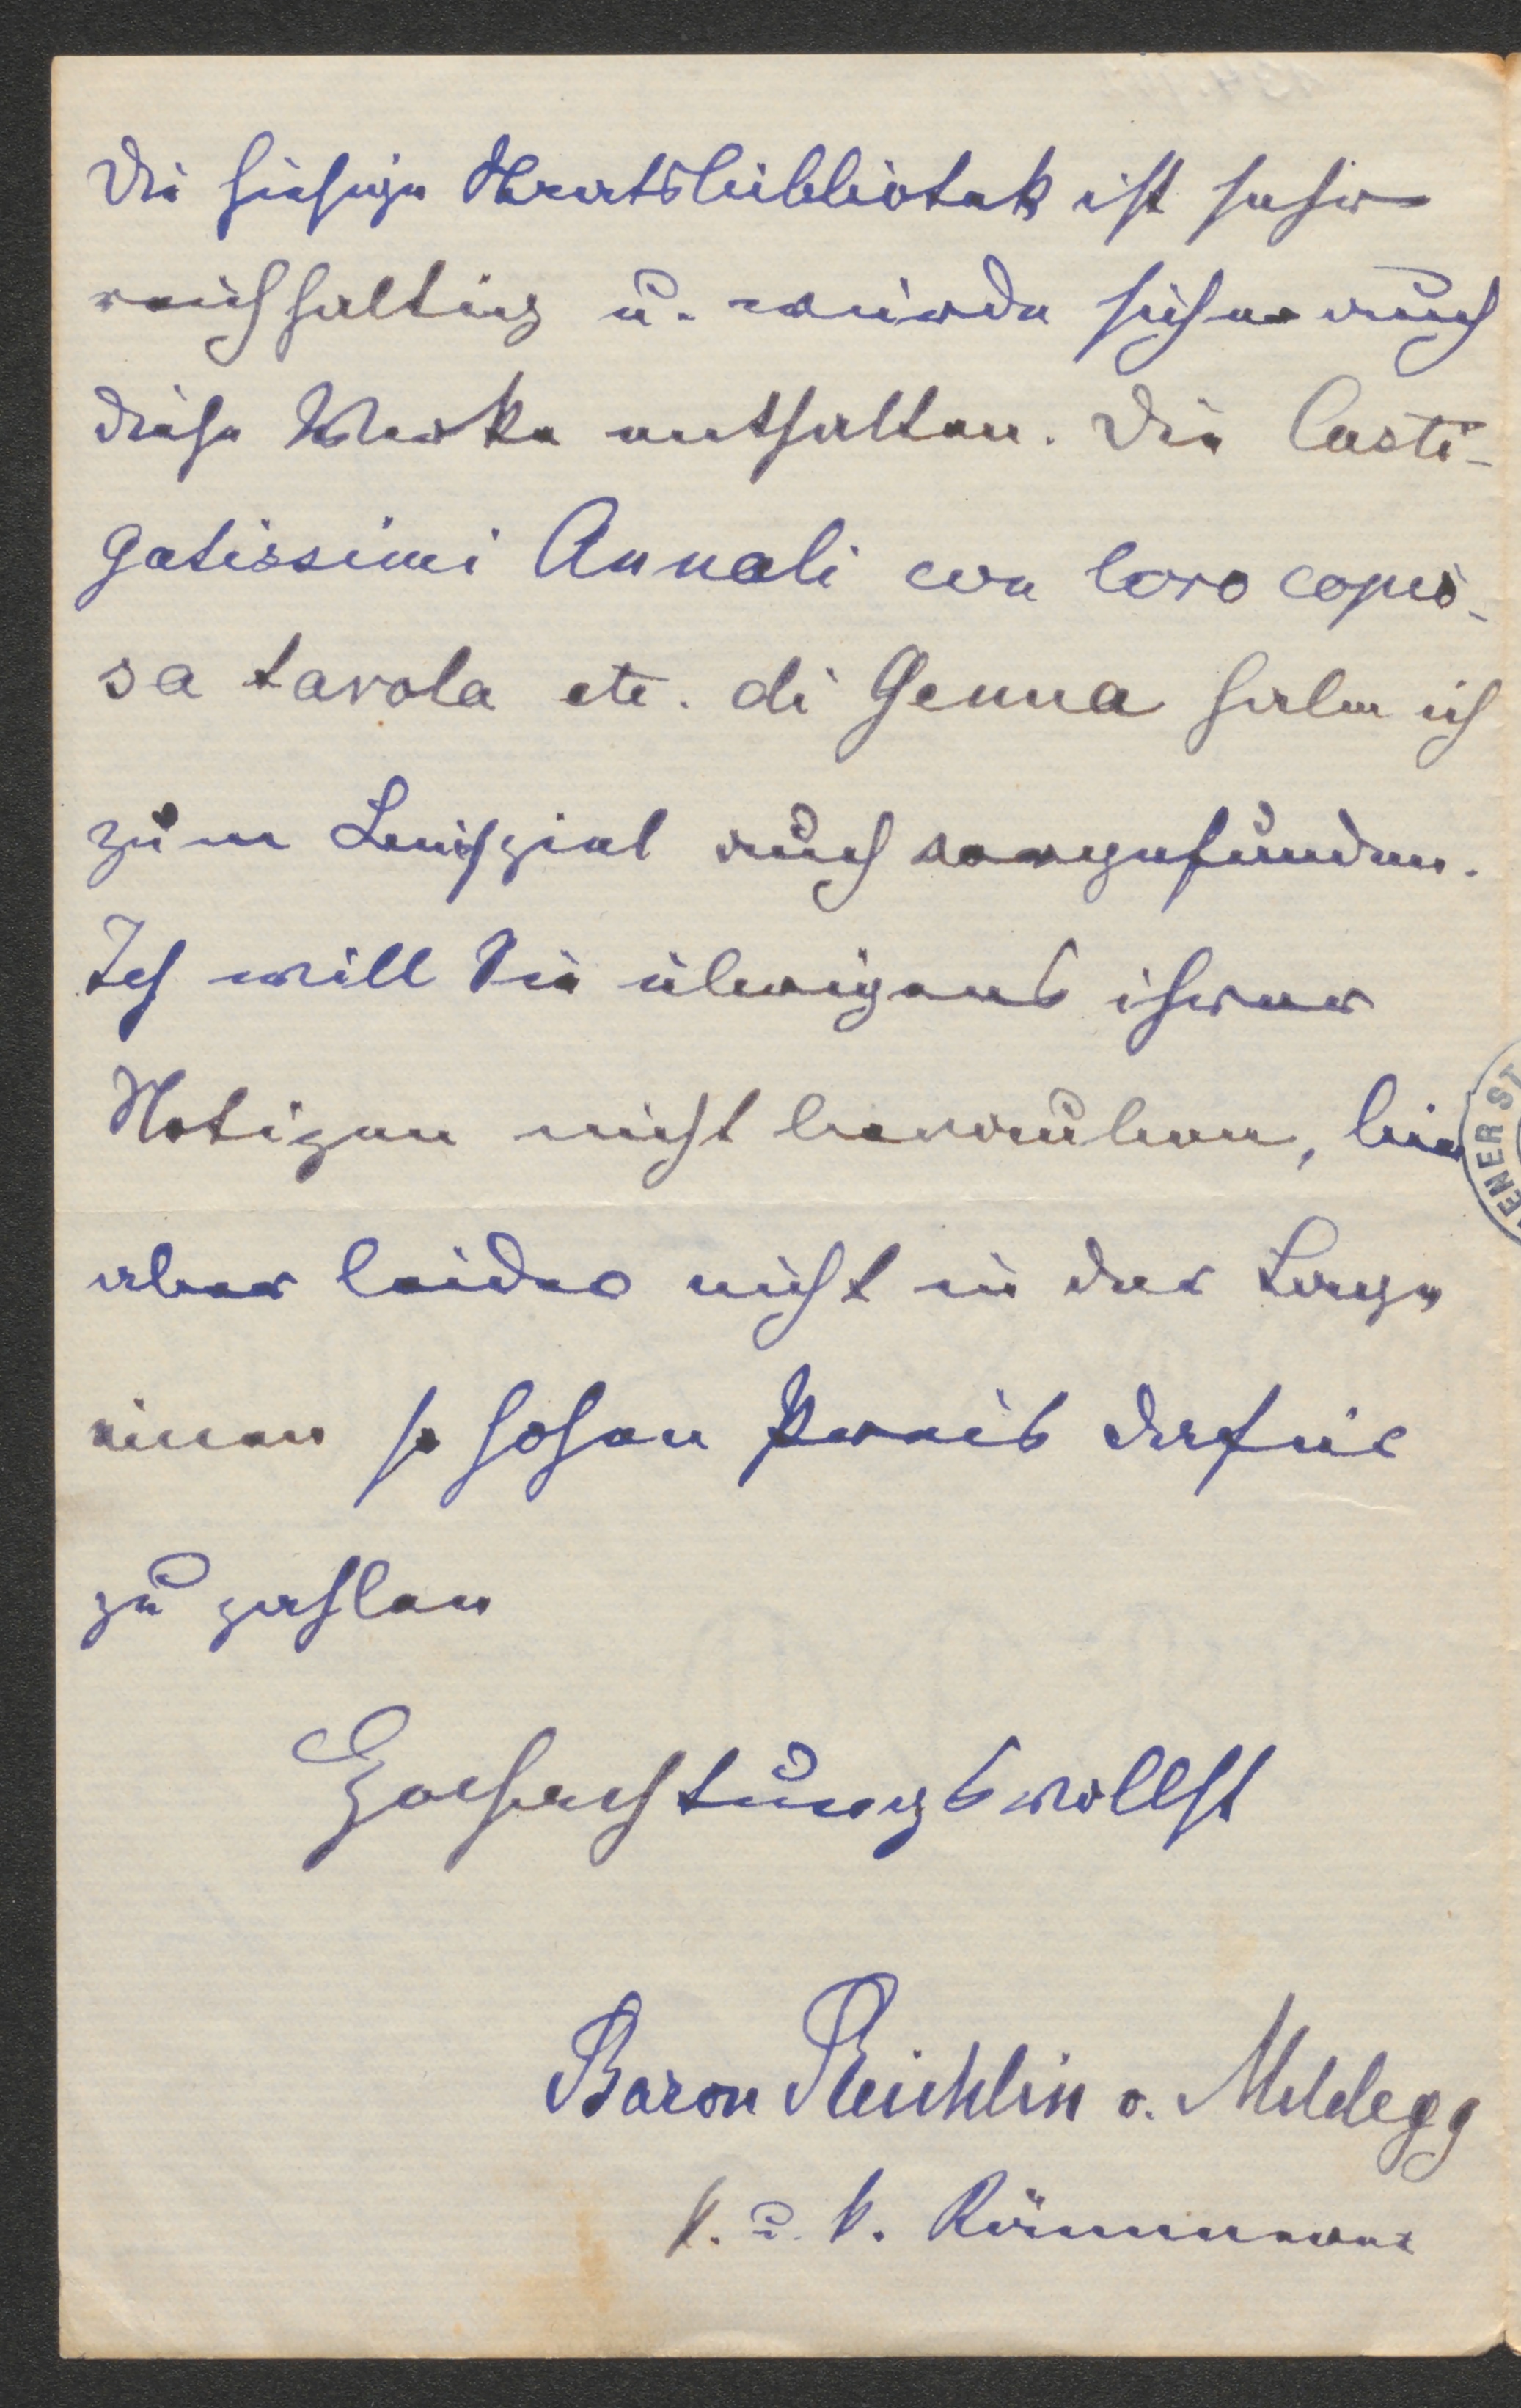 Die hiesige Staatsbibliotek ist sehr
reichhaltig u. würde sicher auch
diese Werke enthalten. Die Casti-
gatissimi Annali con loro copio-
sa tavola etc. di Genua habe ich
zum Beispiel auch vorgefunden.
Ich will Sie übrigens ihrer
Notizen nicht berauben, bin
aber leider nicht in der Lage
einen so hohen Preis dafür
zu zahlen
Hochachtungsvollst
Baron Reichlin v. Meldegg
k. u. k. Kämmerer
ENER ST